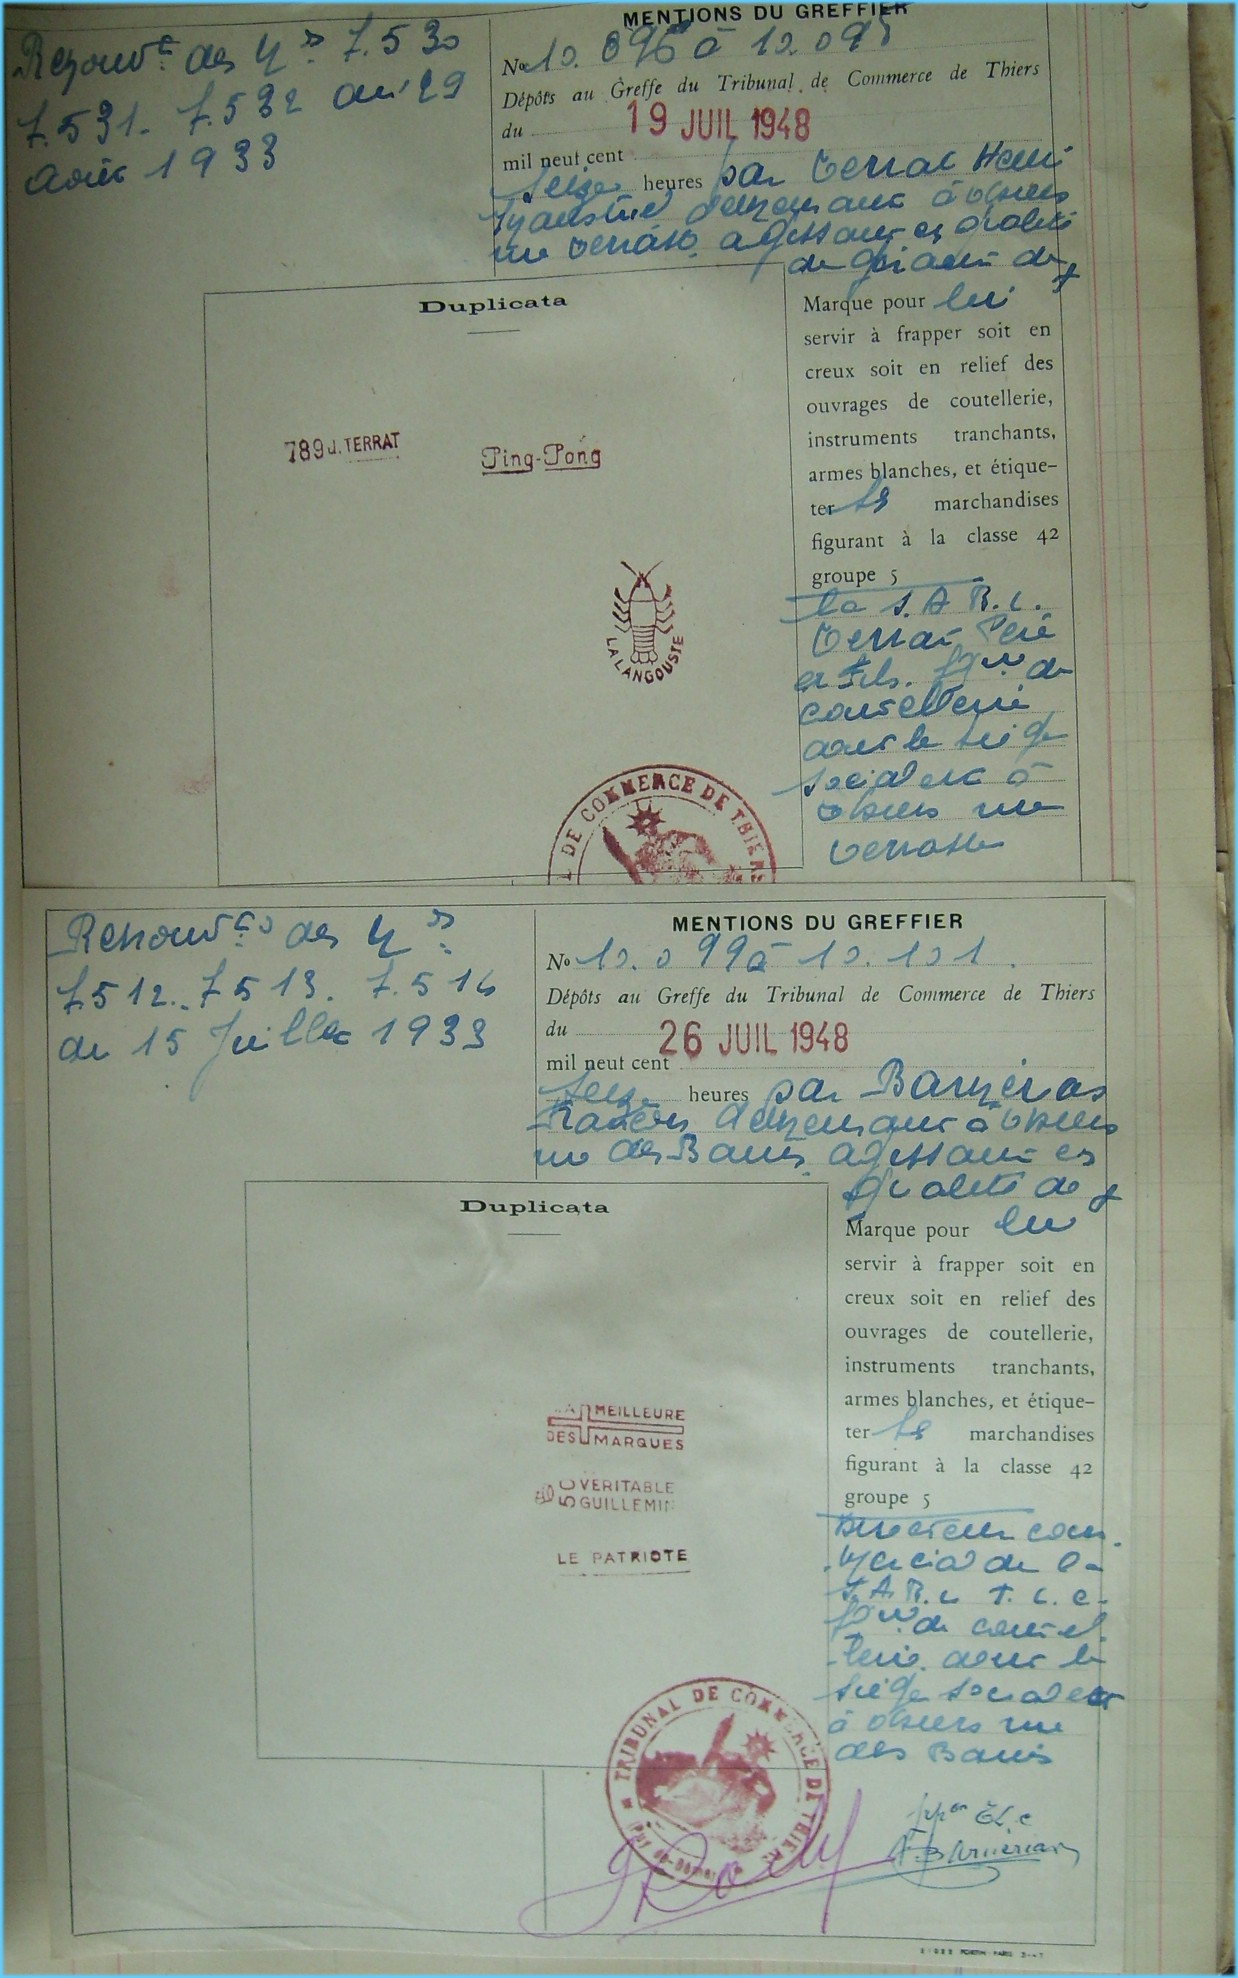 Renouvt des Nos 7.530
7.531. 7.532 du 29
Août 1933
MENTIONS DU GREFFIER
No 10.096 à 10.098
Dépôts au Greffe du Tribunal de Commerce de Thiers
du 19 JUIL 1948
mil neuf cent
Seize heures par Terrat Henri
demeurant à Thiers
rue Terrasse agissant en qualité
de gérant de
Duplicata
789 J. TERRAT
Ping-Pong
LA LANGOUSTE
Marque pour lui
servir à frapper soit en
creux soit en relief des
ouvrages de coutellerie,
instruments tranchants,
armes blanches, et étique-
ter les marchandises
figurant à la classe 42
groupe 5
la S.A.R.L.
Terrat Père
et Fils. de
coutellerie
dont le siège
social est à
Thiers rue
Terrasse
DE COMMERCE DE THIERS
Renouvts des Nos
7512. 7513. 7.516
du 15 Juillet 1933
MENTIONS DU GREFFIER
No 10.099 à 10.101.
Dépôts au Greffe du Tribunal de Commerce de Thiers
du 26 JUIL 1948
mil neuf cent
Seize heures par Barnérias
demeurant à Thiers
rue des Barres agissant en
qualité de
Duplicata
LA MEILLEURE
DES MARQUES
VERITABLE
GUILLEMIN
LE PATRIOTE
Marque pour lui
servir à frapper soit en
creux soit en relief des
ouvrages de coutellerie,
instruments tranchants,
armes blanches, et étique-
ter les marchandises
figurant à la classe 42
groupe 5
Directeur com-
mercial de la
S.A.R.L. T.L.C.
de coutel-
lerie dont le
siège social est
à Thiers rue
des Barres
TRIBUNAL DE COMMERCE DE THIERS
Puy-de-Dôme
F. Barnérias